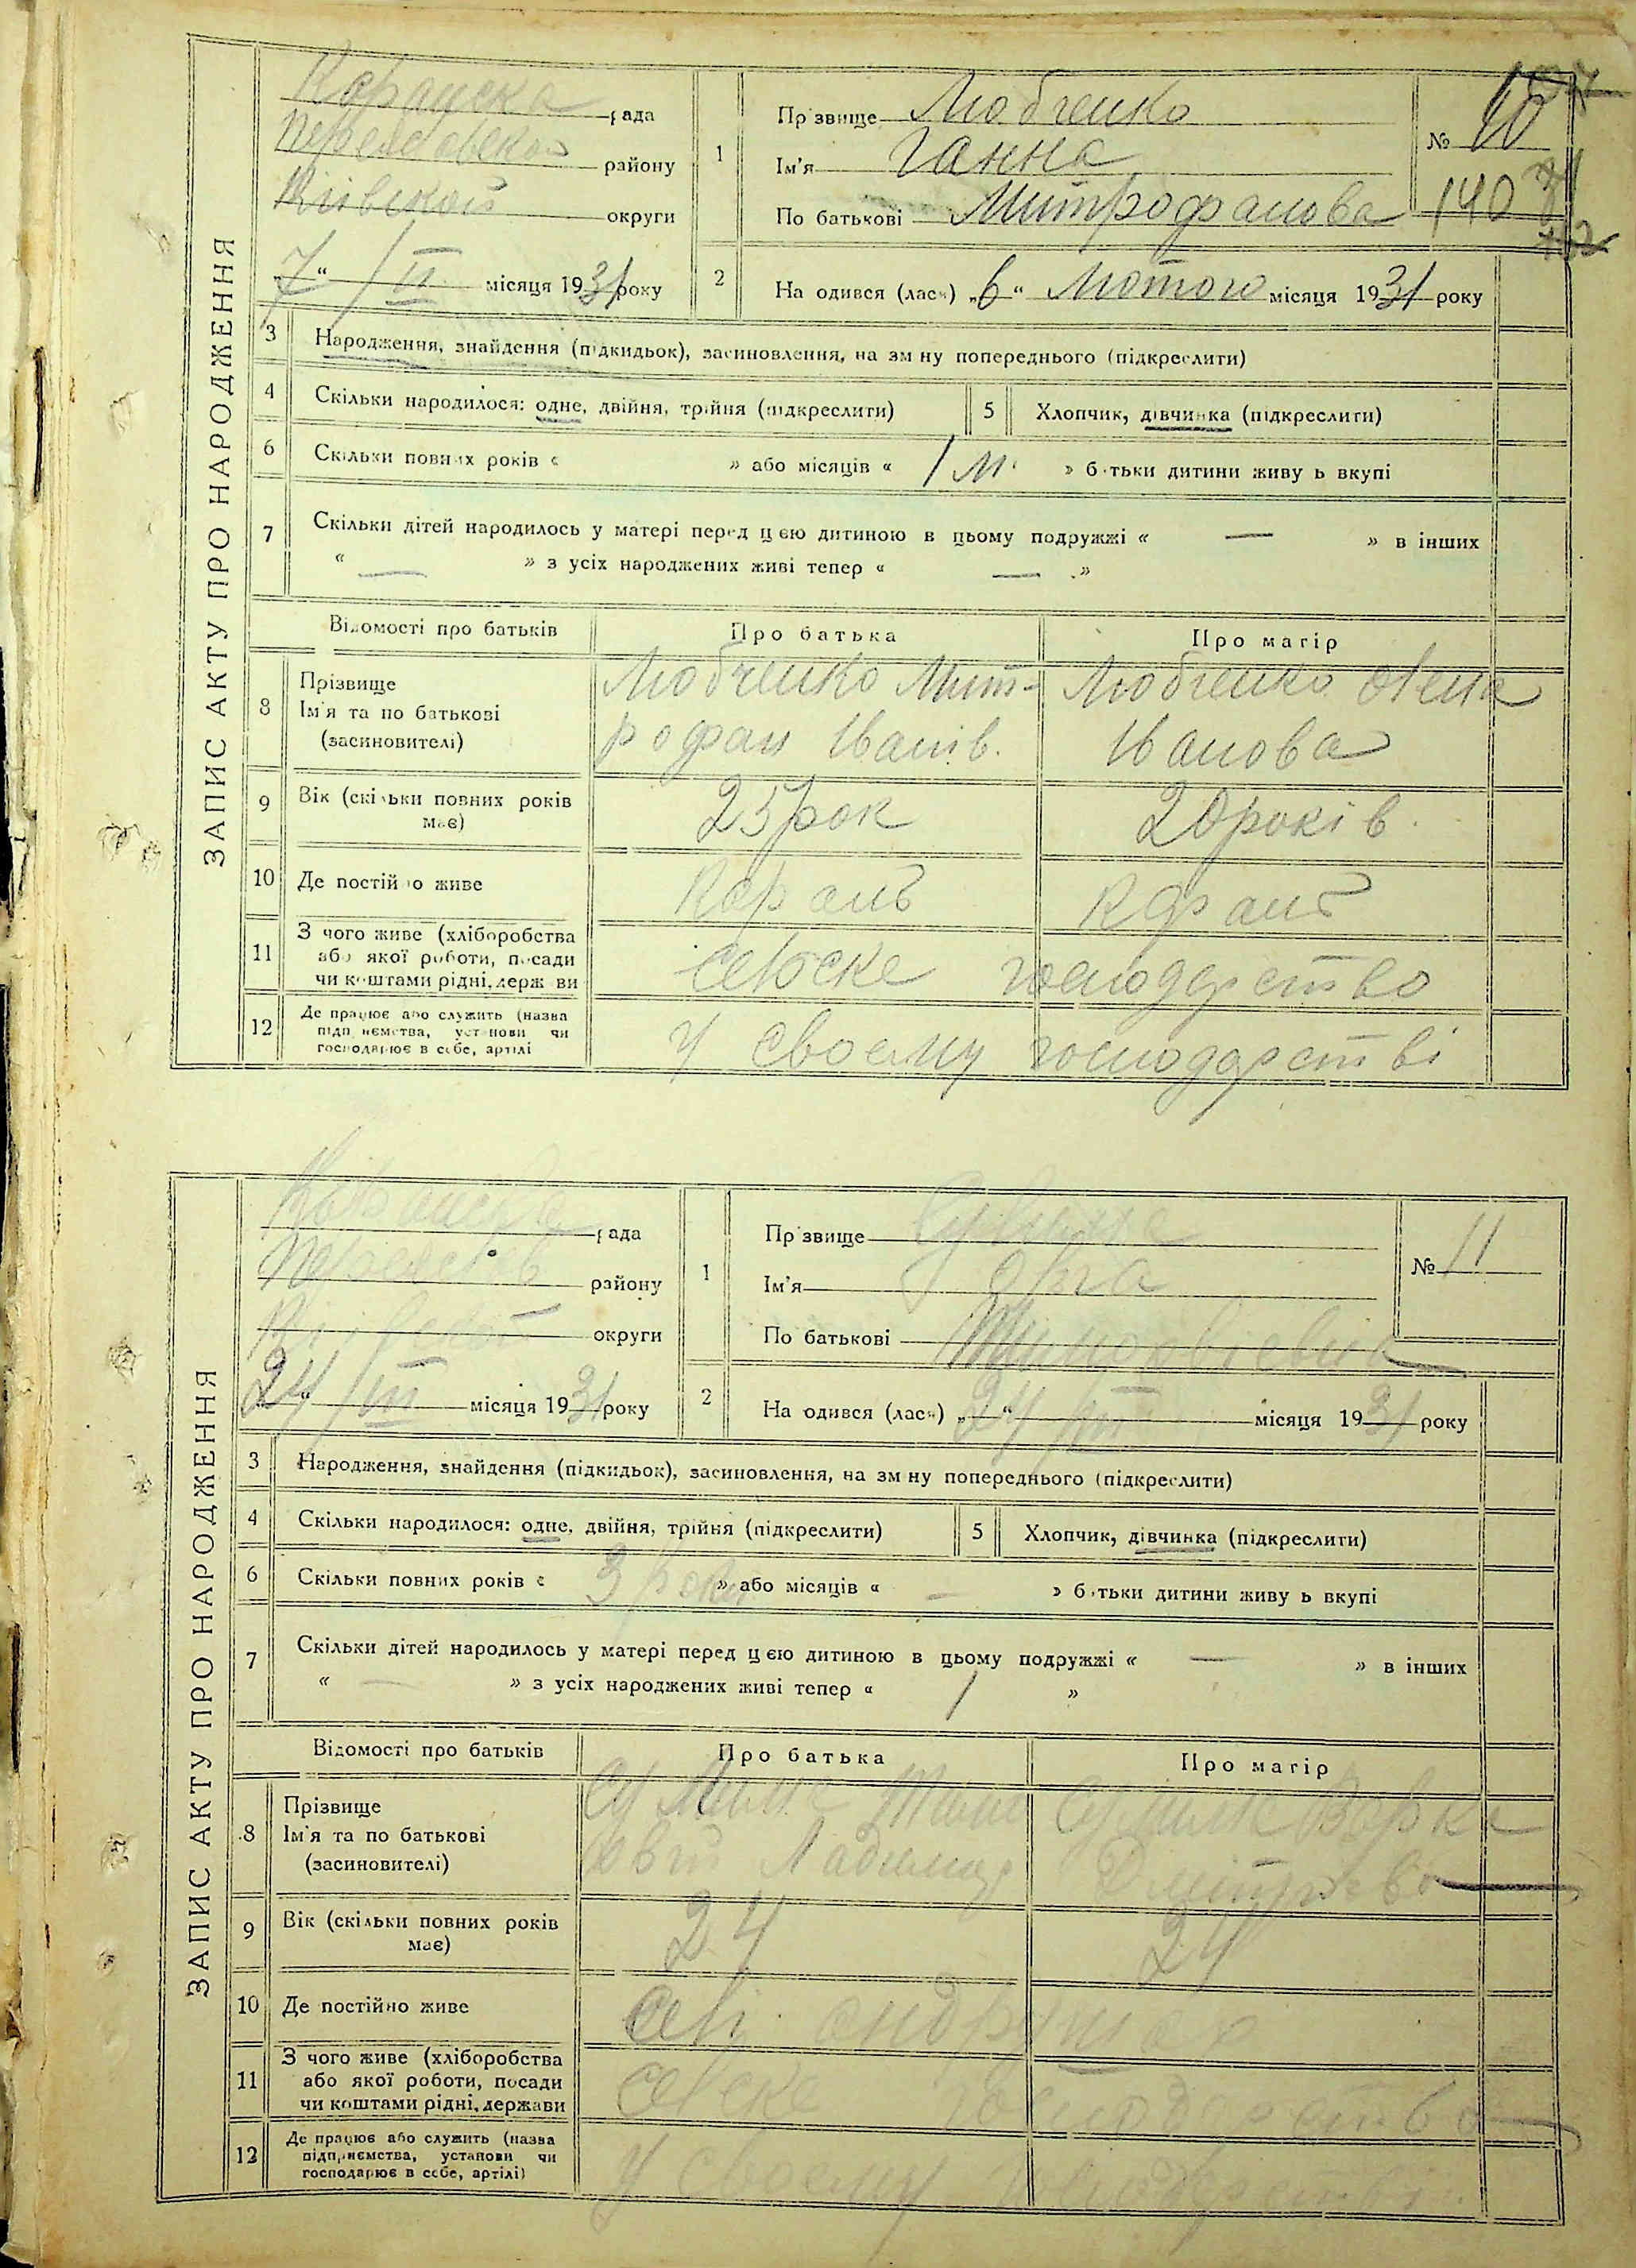 ЗАПИС АКТУ ПРО НАРОДЖЕННЯ
Каранска рада
району
округи
„7“ /II місяця 1931 року
1
Прізвище Любченко
Ім'я Ганна
По батькові Митрофанова
№ 10
140
2
Народився (лася) „6“ Лютого місяця 1931 року
3 Народження, знайдення (підкидьок), засиновлення, на зміну попереднього (підкреслити)
4 Скільки народилося: одне, двійня, трійня (підкреслити)
5 Хлопчик, дівчинка (підкреслити)
6 Скільки повних років « » або місяців « 1 м. » батьки дитини живуть вкупі
7 Скільки дітей народилось у матері перед цією дитиною в цьому подружжі « — » в інших
« — » з усіх народжених живі тепер « — »
Відомості про батьків Про батька Про матір
8 Прізвище
Ім'я та по батькові
(засиновителі)
Любченко Мит-
рофан Іванів.
Любченко Олена
Іванова
9 Вік (скільки повних років
має)
25 рок
20 років
10 Де постійно живе
Карань
Карань
11 З чого живе (хліборобства
або якої роботи, посади
чи коштами рідні, держави
селске господарство
12 Де працює або служить (назва
підприємства, установи чи
господарює в себе, артілі
У своему господарстві
ЗАПИС АКТУ ПРО НАРОДЖЕННЯ
Каранска рада
району
округи
24 /III місяця 1931 року
1
Прізвище
Ім'я
По батькові
№ 11
2
Народився (лася) „24“ /III місяця 1931 року
3 Народження, знайдення (підкидьок), засиновлення, на зміну попереднього (підкреслити)
4 Скільки народилося: одне, двійня, трійня (підкреслити)
5 Хлопчик, дівчинка (підкреслити)
6 Скільки повних років « 3 роки » або місяців « — » батьки дитини живуть вкупі
7 Скільки дітей народилось у матері перед цією дитиною в цьому подружжі « — » в інших
« — » з усіх народжених живі тепер « 1 »
Відомості про батьків Про батька Про матір
8 Прізвище
Ім'я та по батькові
(засиновителі)
Варка
9 Вік (скільки повних років
має)
24
24
10 Де постійно живе
11 З чого живе (хліборобства
або якої роботи, посади
чи коштами рідні, держави
селске господарство
12 Де працює або служить (назва
підприємства, установи чи
господарює в себе, артілі)
У своему господарстві